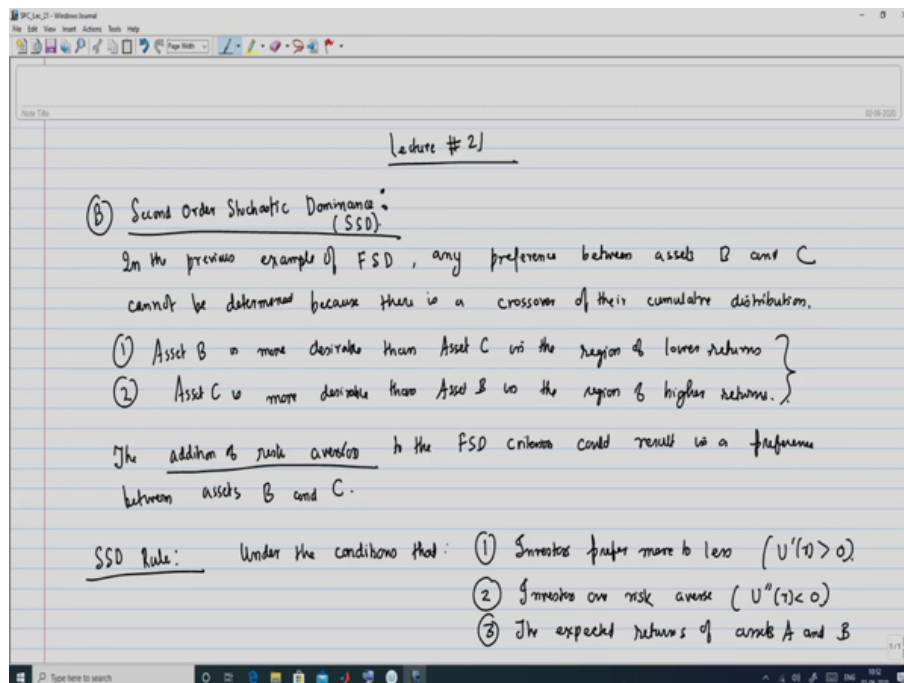 SPC_Lec_21 - Windows Journal
File Edit View Insert Actions Tools Help
Page Width
Note Title
02-06-2020
Lecture # 21
(B) Second Order Stochastic Dominance:
(SSD).
In the previous example of FSD, any preference between assets B and C
cannot be determined because there is a crossover of their cumulative distribution.
(1) Asset B is more desirable than Asset C in the region of lower returns
(2) Asset C is more desirable than Asset B in the region of higher returns.
The addition of risk aversion to the FSD criterion could result in a preference
between assets B and C.
SSD Rule: Under the conditions that: (1) Investors prefer more to less (U'(r) > 0).
(2) Investors are risk averse (U''(r) < 0)
(3) The expected returns of assets A and B
1/1
Type here to search
ENG
10:52